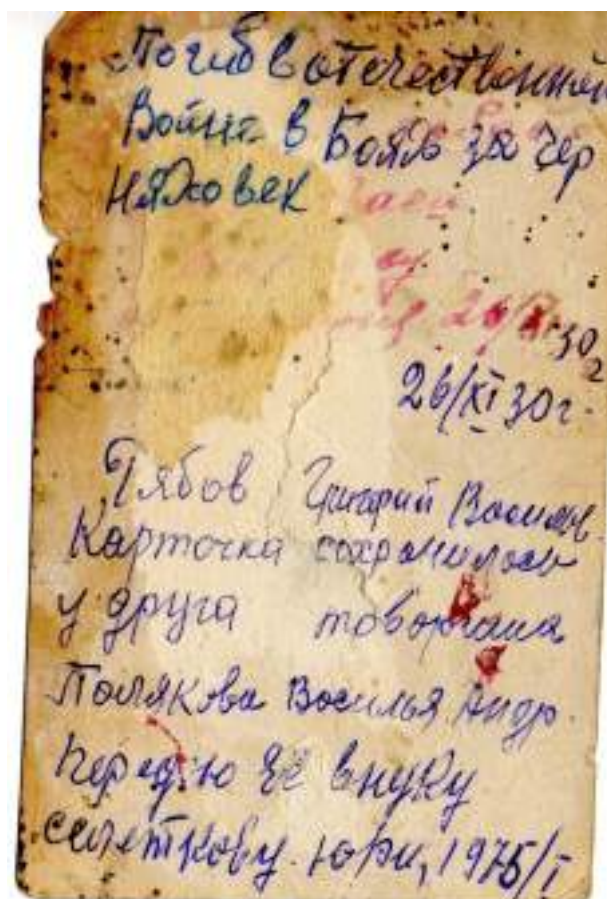 Погиб в отечественной
Войне в Боях за Чер
няховск
26/XI 30
г
26/XI 30г.
Рябов Григорий Васильев.
Карточка сохранилась
у друга товорища
Полякова Василья Андр.
передаю её внуку
Селеткову Юри, 1975/I